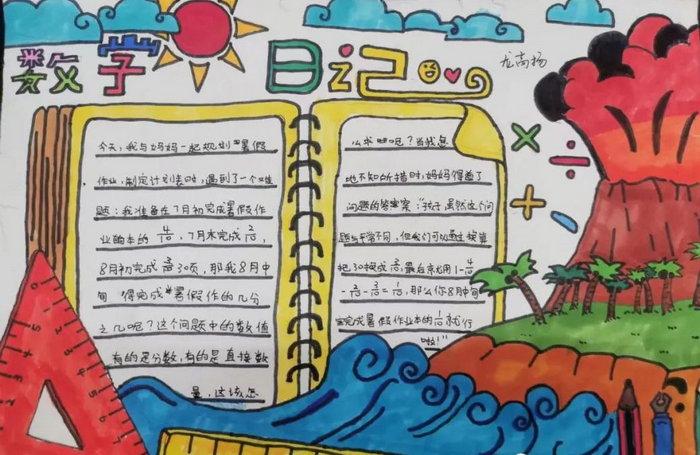 数学 日记
龙尚扬
今天，我与妈妈一起规划暑假
作业，制定计划表时，遇到了一个难
题：我准备在7月初完成暑假作
业本的4/10，7月末完成2/10，
8月初完成30页，那我8月中
旬得完成暑假作的几分
之几呢？这个问题中的数值
有的是分数，有的是直接数
量，这该怎
么求呢？当我急
地不知所措时，妈妈得着了
问题的答案："孩子虽然这个问
题与平常不同，但我们可以通过换算
把30换成3/10，最后京尤用1-4/10
-2/10-3/10=1/10，那么你8月中旬
完成暑假作业本的1/10就行
啦！"